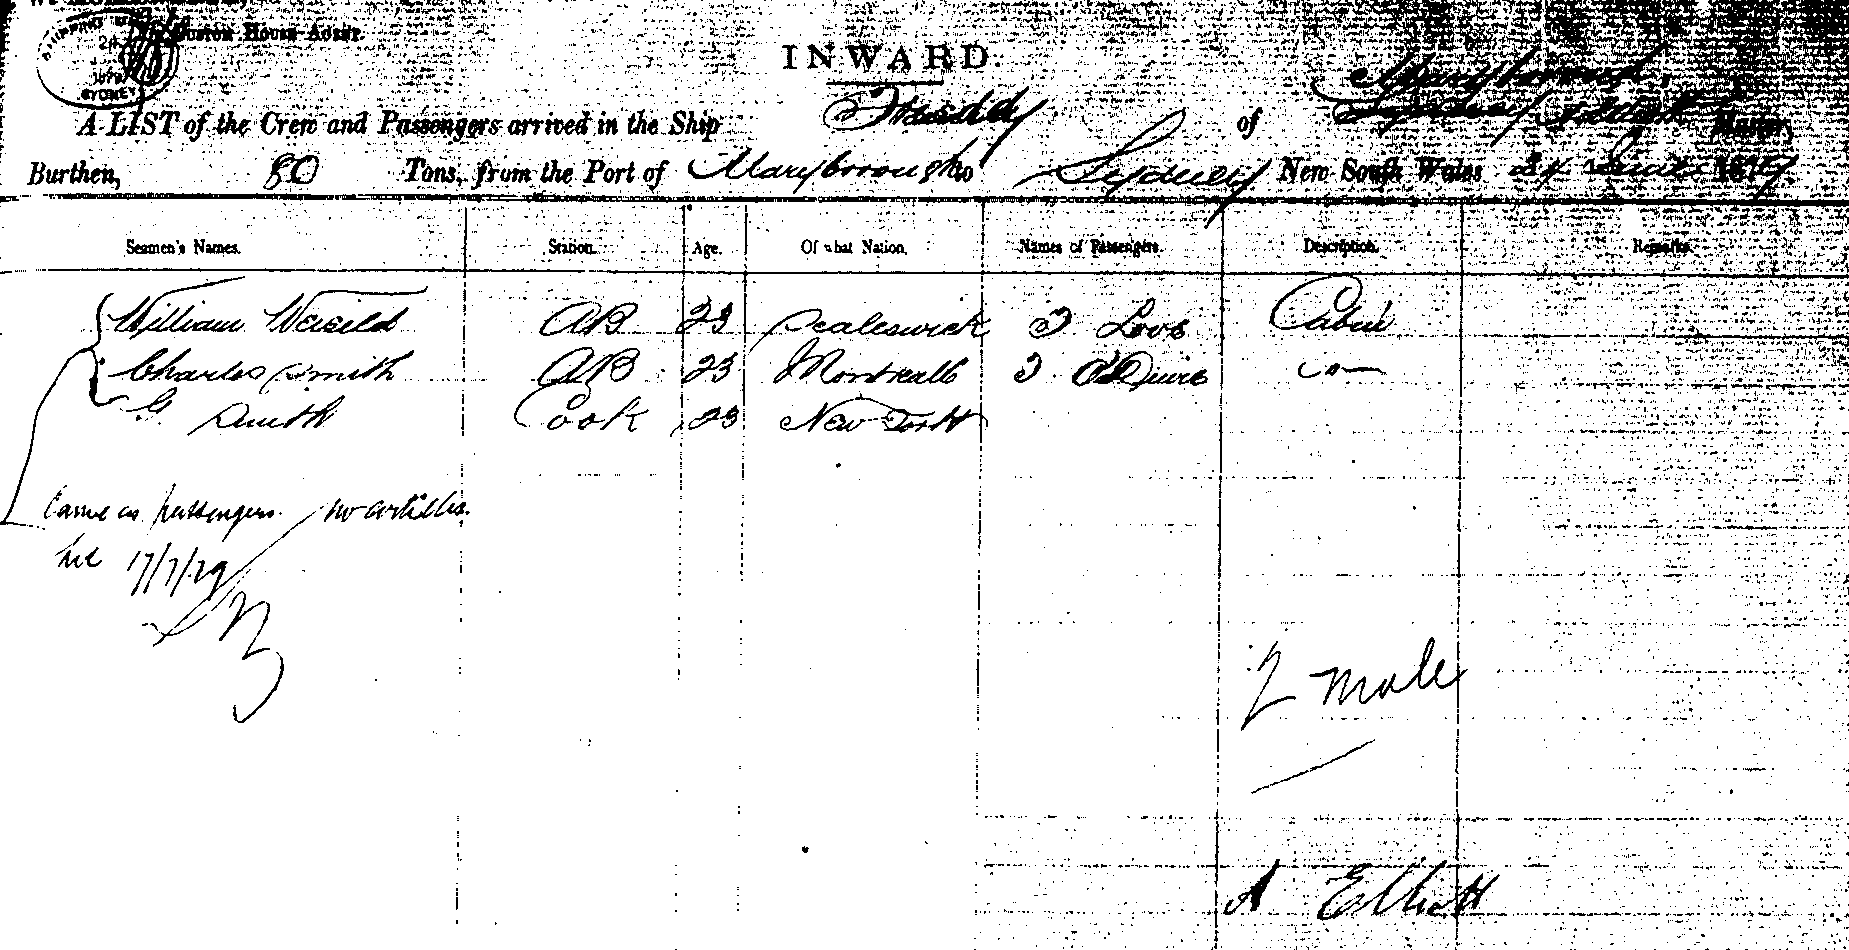 Custom House Agent.
SHIPPING
24
1879
SYDNEY
INWARD.
Maryborough,
A LIST of the Crew and Passengers arrived in the Ship of Sydney Elliott Master,
Burthen, 80 Tons, from the Port of Maryborough to Sydney New South Wales 24 June 1879
Seamen's Names. Station. Age. Of what Nation. Names of Passengers. Description. Remarks
William AB 23 Love Cabin
Charles Smith AB 23 Montreall
G. Smith Cook 23 New York
Came as passengers. no articles.
17/7/79
2 male
A Elliott